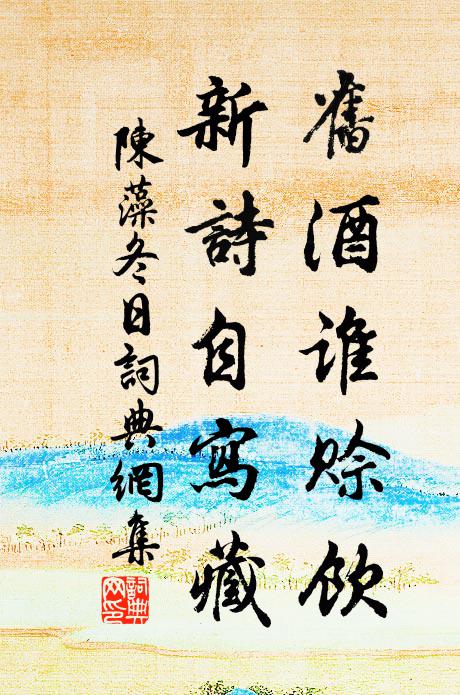 舊酒誰賒飲
新詩自寫藏
陳藻冬日詞典網集